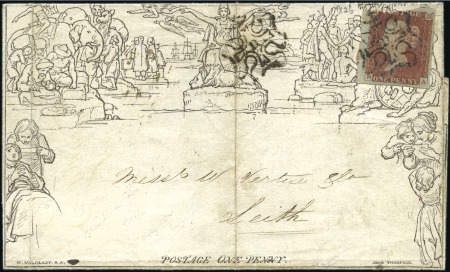 ONE PENNY
Messrs W. Vertue & Co
Leith
POSTAGE ONE PENNY.
W. MULREADY. R.A.
JOHN THOMPSON